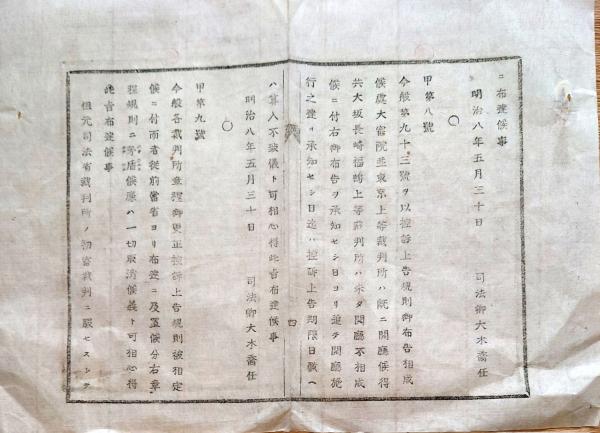 ニ布達候事
明治八年五月三十日　司法卿大木喬任
〇
甲第八號
今般第九十三號ヲ以控訴上告規則御布告相成
候處大審院並東京上等裁判所ハ既ニ開廳候得
共大坂長崎福嶋上等裁判所ハ未タ開廳不相成
候ニ付右御布告ヲ承知セシ日ヨリ追テ開廳施
行之達ヲ承知セシ日迄ハ控訴上告期限日數ヘ
ハ算入不致儀ト可相心得此旨布達候事
明治八年五月三十日　司法卿大木喬任
〇
甲第九號
今般各裁判所章程御更正控訴上告規則被相定
候ニ付而者從前當省ヨリ布達ニ及置候分右章
程規則ニ牴觸候廉ハ一切取消候儀ト可相心得
此旨布達候事
但元司法省裁判所ノ初審裁判ニ服セスシテ
四